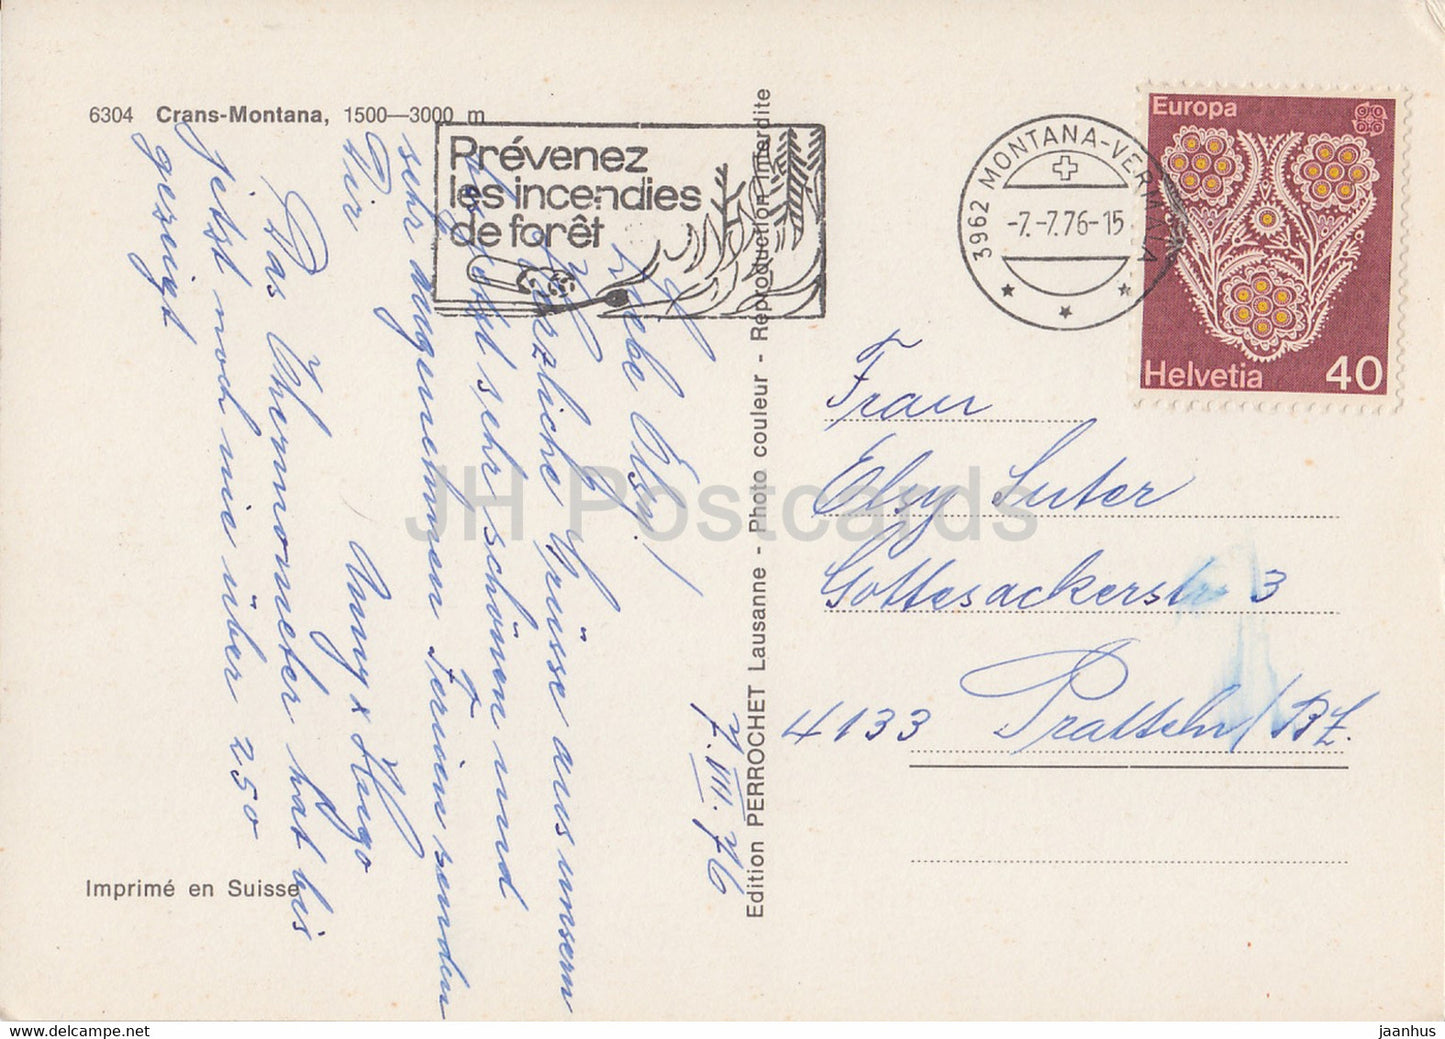 6304 Crans-Montana, 1500—3000 m
Prévenez
les incendies
de forêt
3962 MONTANA-VERMALA
-7.-7.76-15
Europa
Helvetia 40
7.VII.76
Liebe Elsy!
Herzliche Grüsse aus unsern
bis jetzt sehr schönen und
sehr angenehmen Ferien senden
Dir
Anny & Hugo
Das Thermometer hat bis
jetzt noch nie über 25°
gezeigt
Imprimé en Suisse
Edition PERROCHET Lausanne - Photo couleur - Reproduction interdite
Frau
Elsy Suter
Gottesackerstr 3
4133 Pratteln/BL.
JH Postcards
www.delcampe.net
jaanhus